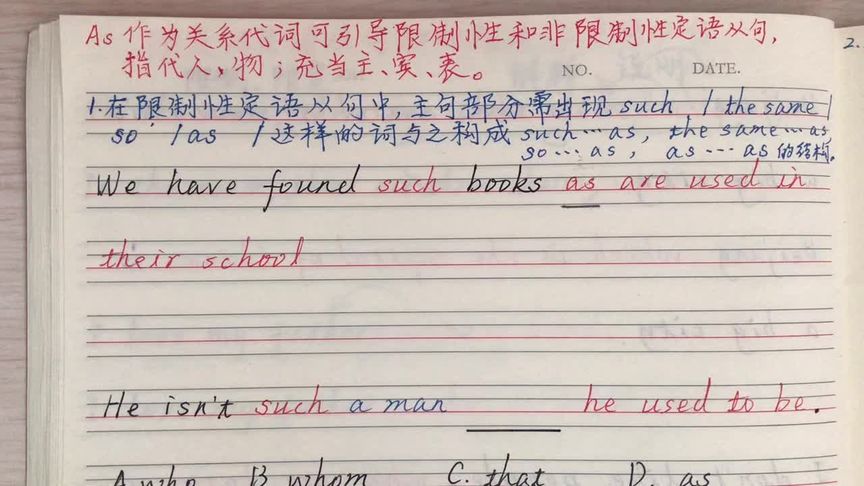 As 作为关系代词可引导限制性和非限制性定语从句,
指代人、物;充当主、宾、表。
NO. DATE.
2.
1.在限制性定语从句中,主句部分需出现 such / the same /
so / as / 这样的词与之构成 such…as, the same…as
so…as, as…as 的结构。
We have found such books as are used in
their school
He isn't such a man ______ he used to be.
A. who B. whom C. that D. as